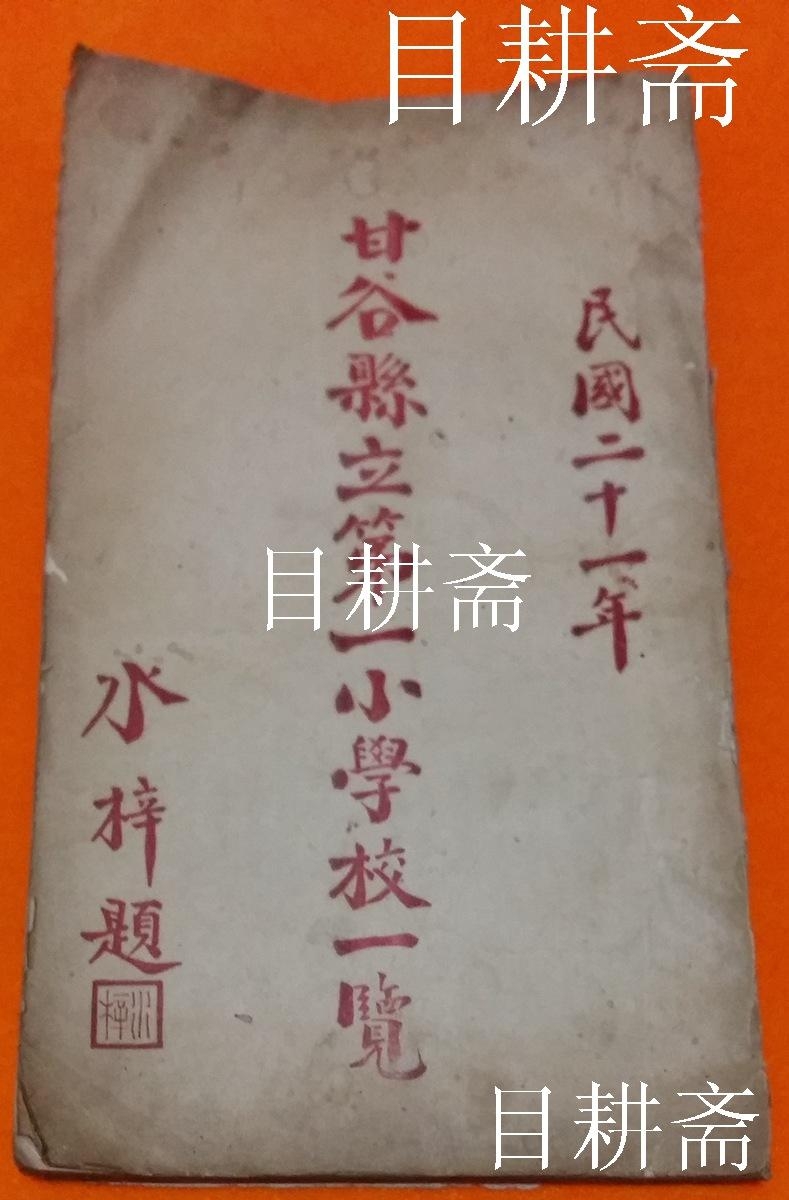 目耕斋
民國二十一年
甘谷縣立第一小學校一覽
目耕斋
水梓題
水梓
目耕斋